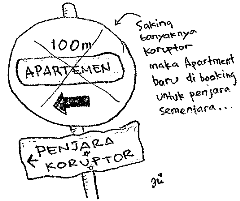 100m
APARTEMEN
PENJARA
KORUPTOR
Saking
banyaknya
Koruptor
maka Apartment
baru di booking
untuk penjara
sementara...